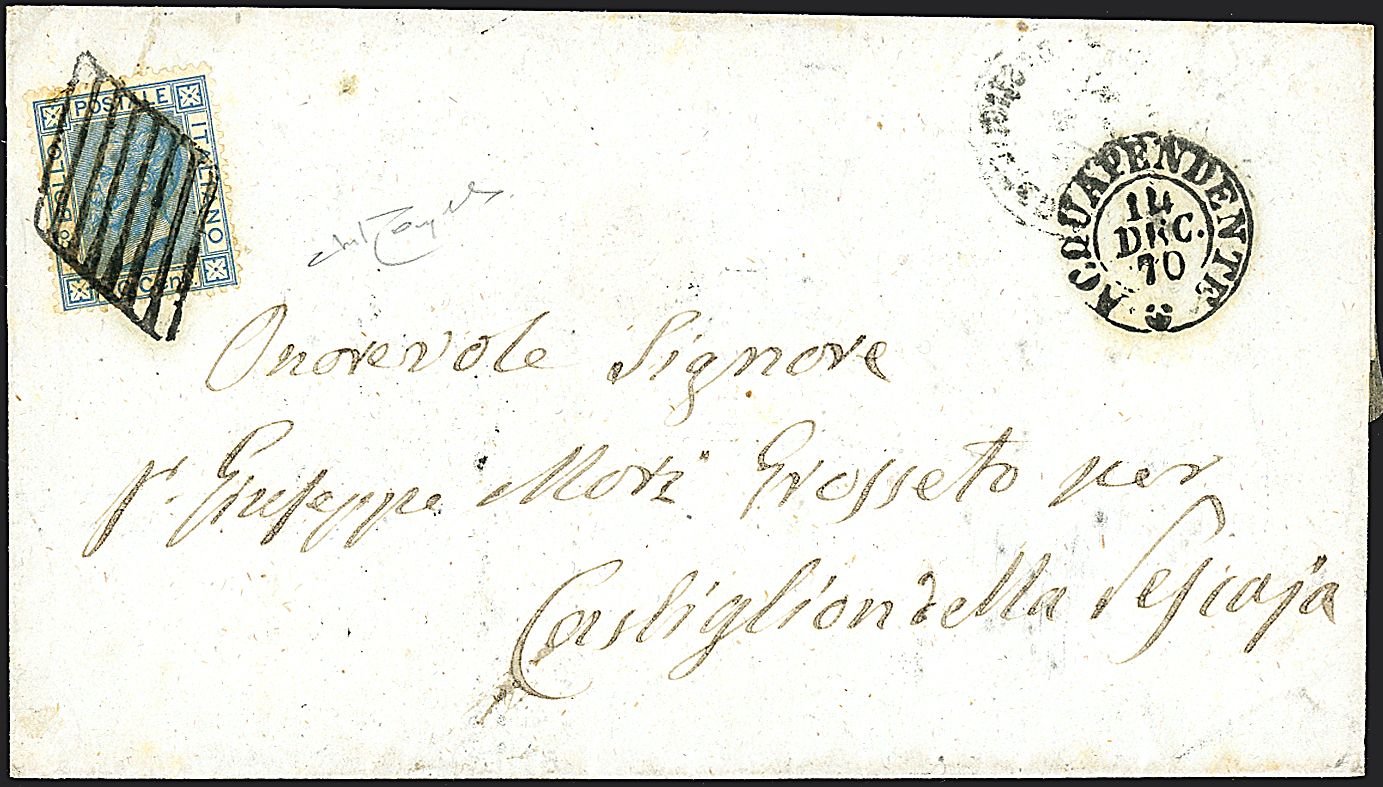 POSTALE
BOLLO
ITALIANO
Cent
ACQUAPENDENTE
14
DEC.
70
Onorevole Signore
Giuseppe Mori Grosseto per
Castiglion della Pescaja